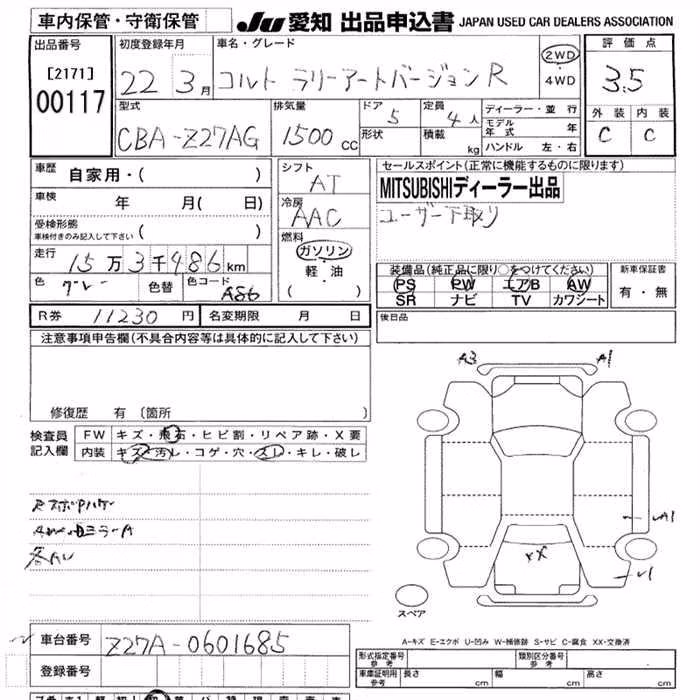 車内保管・守衛保管
JU 愛知 出品申込書 JAPAN USED CAR DEALERS ASSOCIATION
出品番号
[2171]
00117
初度登録年月
22 3月
車名・グレード
コルト ラリーアートバージョンR
2WD・4WD
評価点
3.5
外装 内装
C C
型式
CBA-Z27AG
排気量
1500 CC
ドア 5
形状
定員 4人
積載 kg
ディーラー・並行
モデル年式 年
ハンドル 左・右
車歴 自家用・( )
車検 年 月( 日)
受検形態
車検付きのみ記入して下さい ( )
走行 15万3千486km
色 グレー 色替 色コード A86
シフト AT
冷房 AAC
燃料
ガソリン・軽油
( )
セールスポイント(正常に機能するものに限ります)
MITSUBISHIディーラー出品
ユーザー下取り
装備品(純正品に限り○をつけてください)
PS PW エアB AW
SR ナビ TV カワシート
新車保証書
有・無
R券 11230 円 名変期限 月 日
後日品
注意事項申告欄(不具合内容等は具体的に記入して下さい)
修復歴 有 〔箇所 〕
検査員記入欄
FW キズ・飛石・ヒビ割・リペア跡・X要
内装 キズ・汚レ・コゲ・穴・スレ・キレ・破レ
A3 A1
A1
XX
スペア
A-キズ E-エクボ U-凹み W-補修跡 S-サビ C-腐食 XX-交換済
車台番号 Z27A-0601685
登録番号
形式指定番号 参考 類別区分番号 参考
車庫証明用 参考 長さ cm 幅 cm 高さ cm